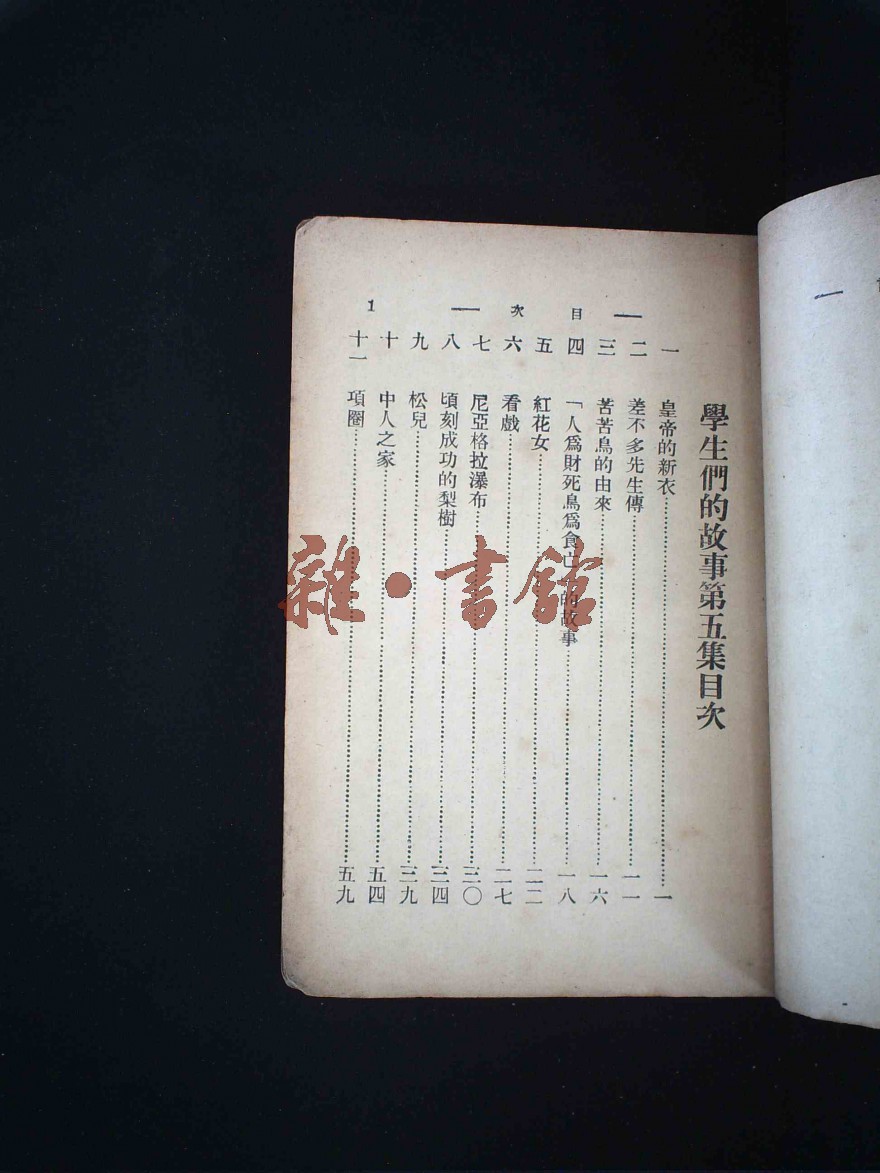 學生們的故事第五集目次
— 目 次 — 1
一 皇帝的新衣 一
二 差不多先生傳 一一
三 苦苦鳥的由來 一六
四 「人爲財死鳥爲食亡」的故事 一八
五 紅花女 二二
六 看戲 二七
七 尼亞格拉瀑布 三〇
八 頃刻成功的梨樹 三四
九 松兒 三九
十 中人之家 五四
十一 項圈 五九
雜·書館